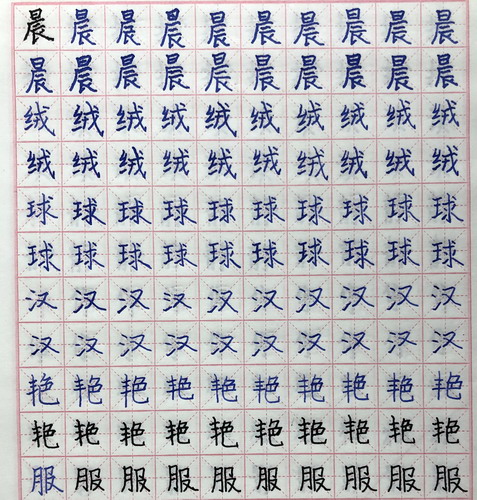 晨晨晨晨晨晨晨晨晨晨晨
晨晨晨晨晨晨晨晨晨晨晨
绒绒绒绒绒绒绒绒绒绒绒
绒绒绒绒绒绒绒绒绒绒绒
球球球球球球球球球球球
球球球球球球球球球球球
汉汉汉汉汉汉汉汉汉汉汉
汉汉汉汉汉汉汉汉汉汉汉
艳艳艳艳艳艳艳艳艳艳艳
艳艳艳艳艳艳艳艳艳艳艳
服服服服服服服服服服服